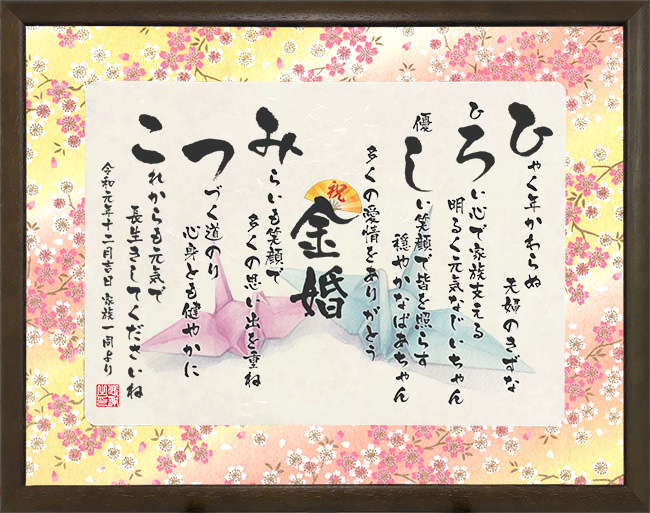 ひゃく年かわらぬ
夫婦のきずな
ひろい心で家族支える
明るく元気なじいちゃん
優しい笑顔で皆を照らす
穏やかなばあちゃん
多くの愛情をありがとう
祝
金婚
みらいも笑顔で
多くの思い出を重ね
つづく道のり
心身とも健やかに
これからも元気で
長生きしてくださいね
令和元年十二月吉日 家族一同より